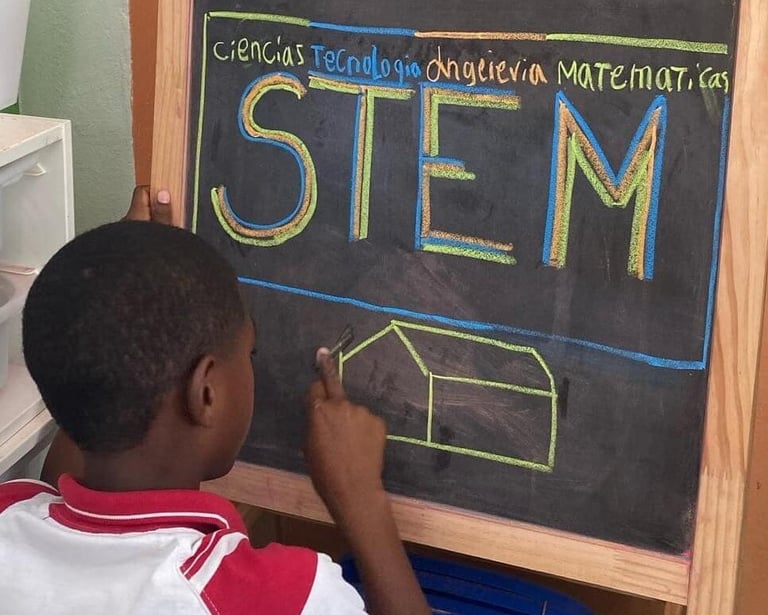 Ciencias Tecnologia Ingeieria Matematicas
STEM